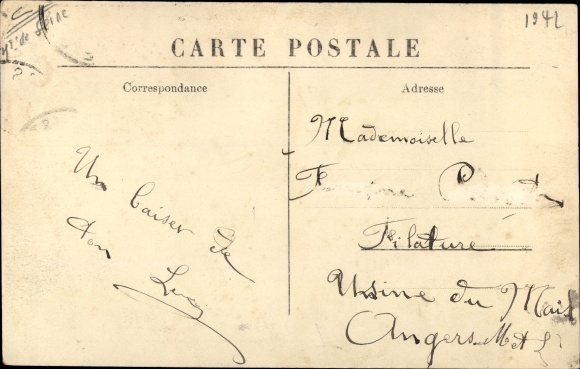 1942
de Seine
CARTE POSTALE
Correspondance
Adresse
Un baiser de
ton Lucy
Mademoiselle
Filature
Usine du Mail
Angers M et L